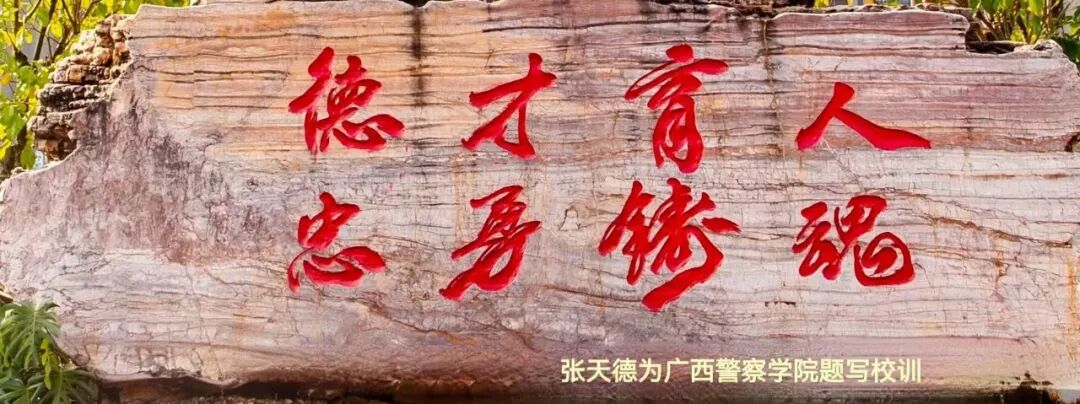 德才育人
忠勇鑄魂
张天德为广西警察学院题写校训